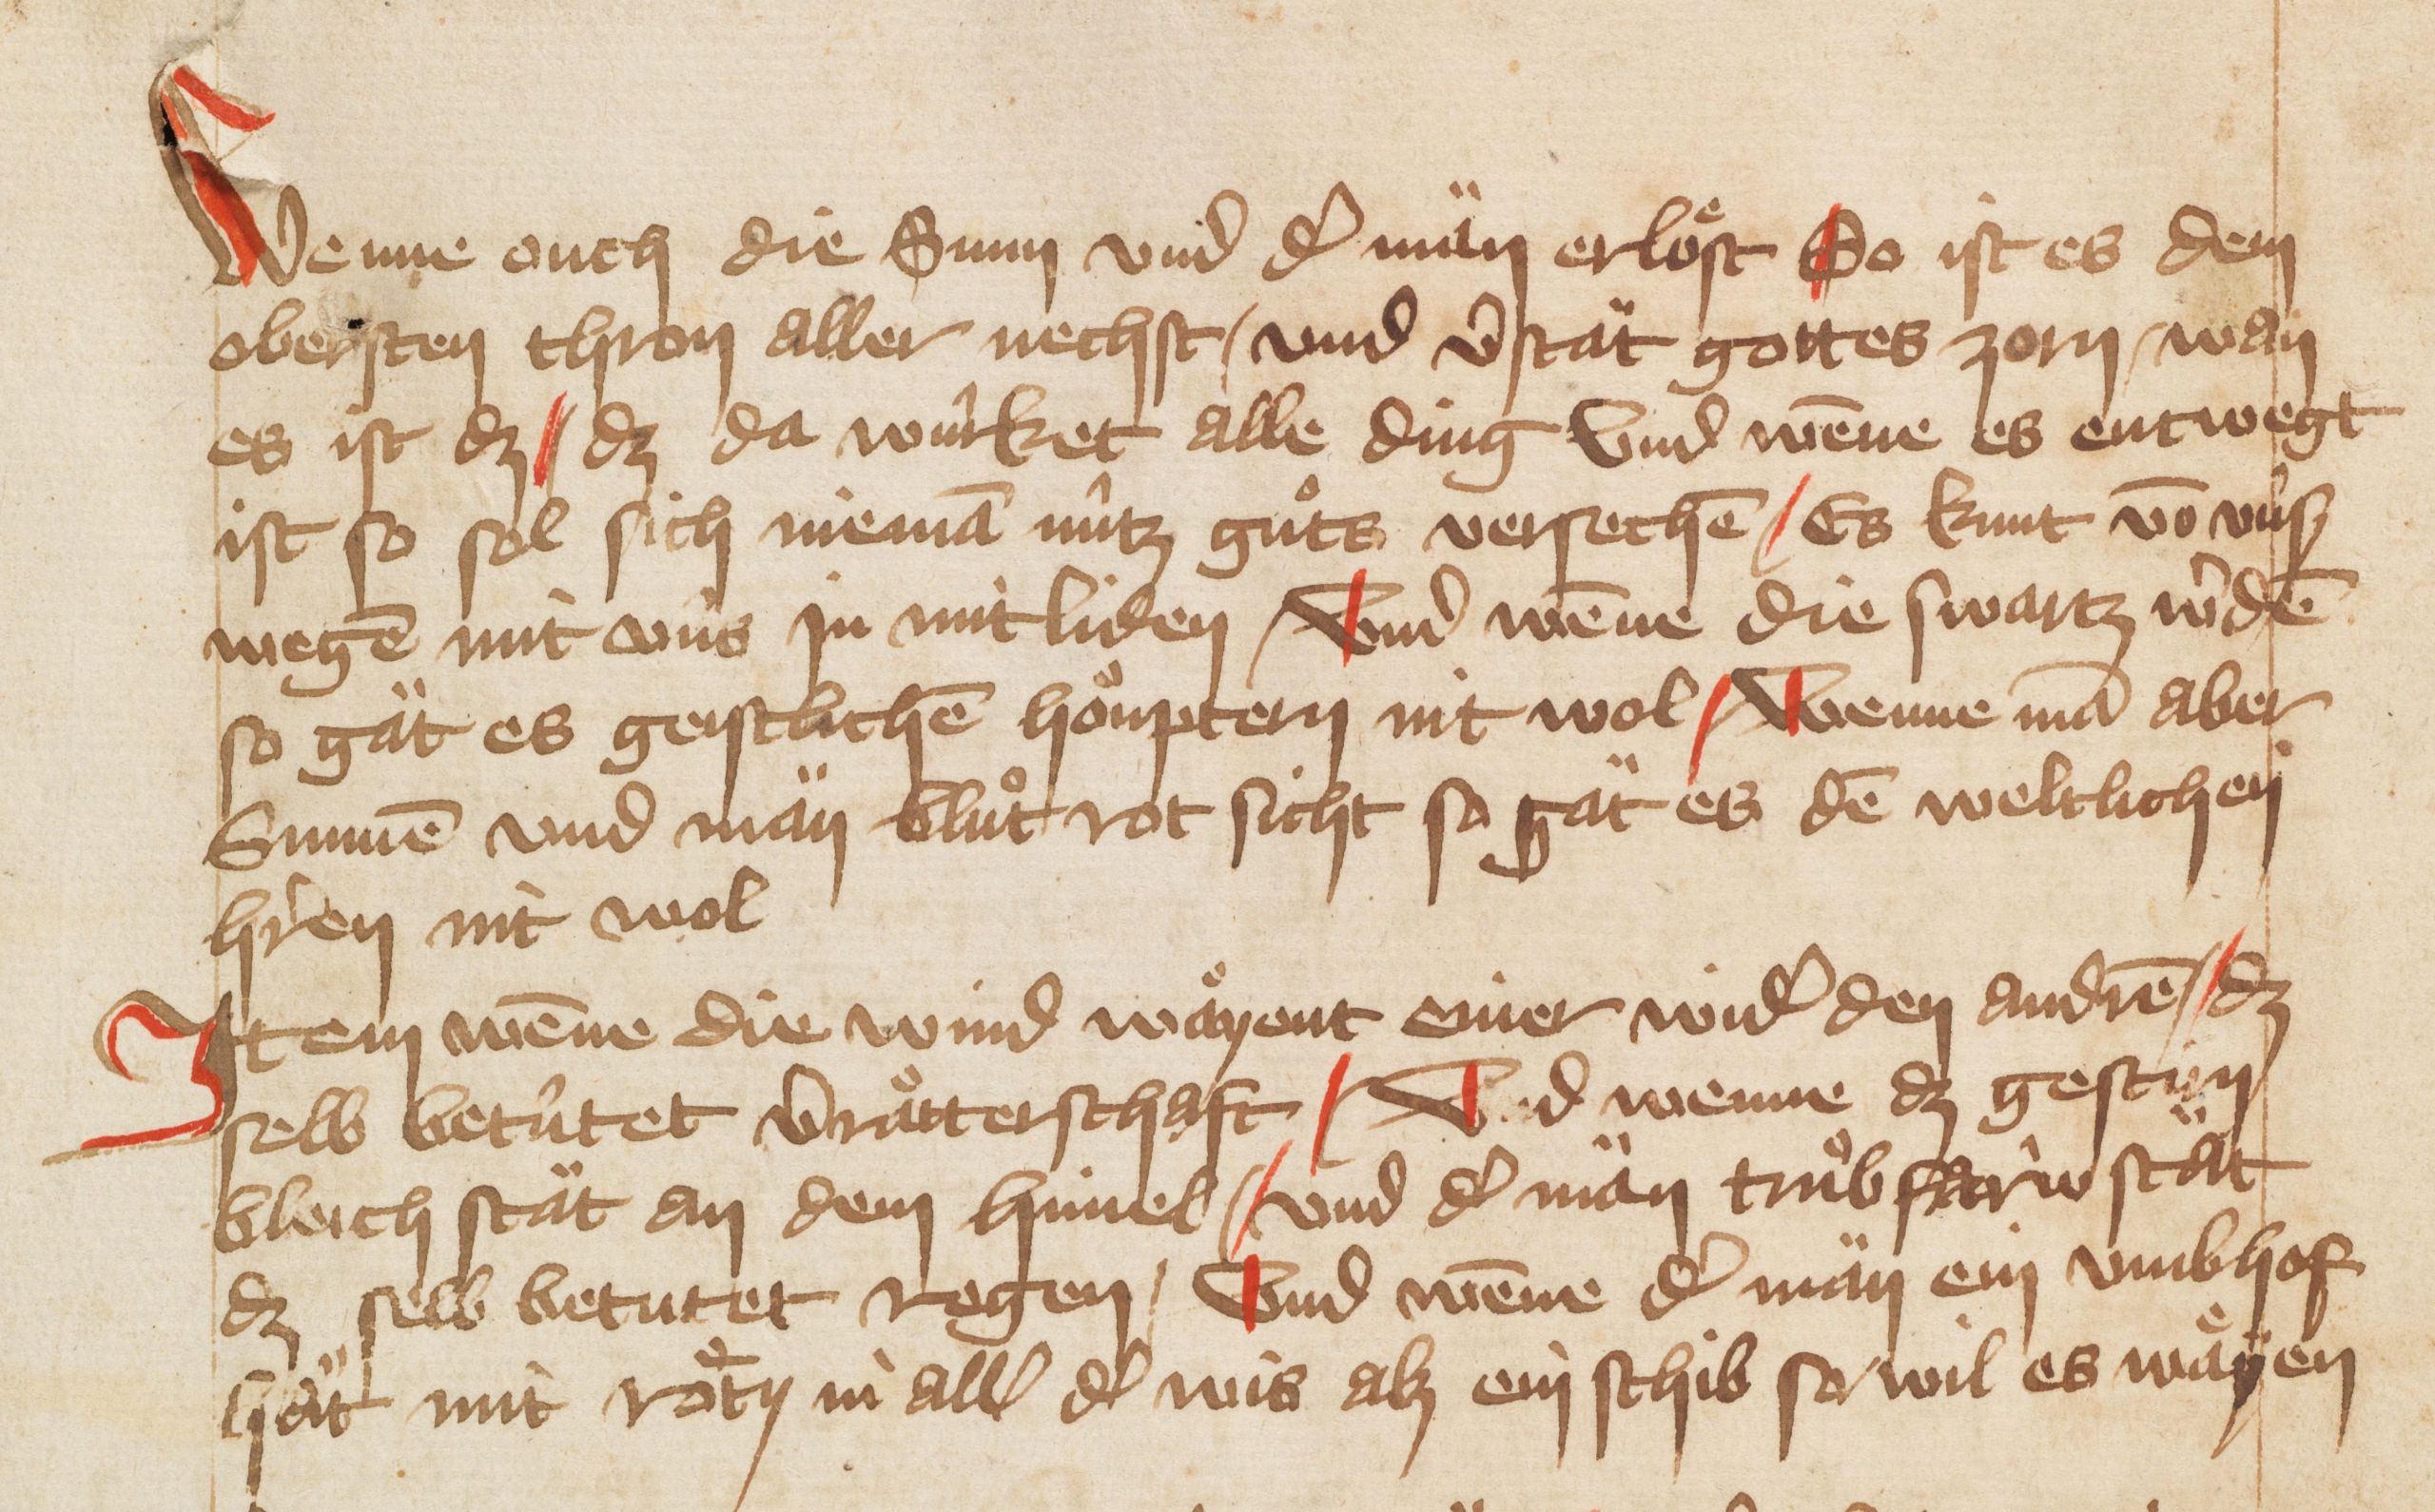 Wenne ouch die Sunn vnd dˀ män erlöͤst So ist es dem
obersten thron aller nechst / vnd vˀstät gottes zorn / wan
es ist dz / dz da wúrket alle ding Vnd wēne es entwegt
ist so sol sich niemā nútz guͦts versechē / Es kunt vō vúnsˀ
wegē mit vns in mitliden / Vnd wēne die swartz wˀdē
so gät es geistlichē höͮptern nit wol / Wenne mā aber
Sunnē vnd män bluͦt rot sicht so gät es dē weltlichen
hˀren nit wol
Item wēne die wind wäͤyent einer widˀ den andrē / dz
selb betútet vˀräͤtterschaft / Vnd wenne dz gestirn
bleich stät an dem himel / vnd dˀ män truͤbfarw stät
dz selb betutet regen / Vnd wēne dˀ män ein vmbhof
hät mit röͤty in allˀ dˀ wis alz ein schib so wil es wäͤyen